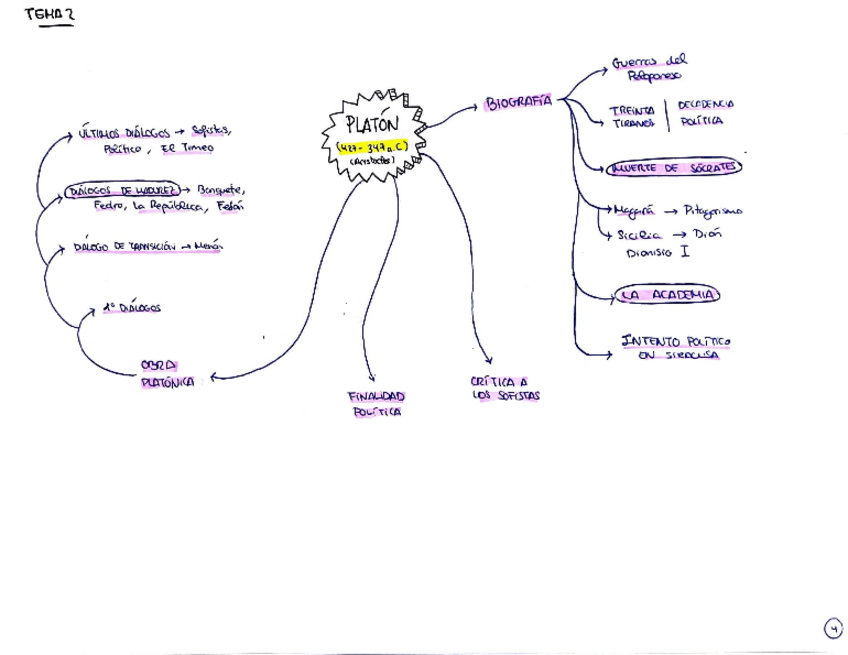 TEMA 2
PLATÓN
(427 - 347 a.C)
(Aristocles)
BIOGRAFÍA
Guerras del
Peloponeso
TREINTA
TIRANOS
DECADENCIA
POLÍTICA
MUERTE DE SÓCRATES
→ Pitagorismo
Sicilia → Dión
Dionisio I
LA ACADEMIA
INTENTO POLÍTICO
EN SIRACUSA
CRÍTICA A
LOS SOFISTAS
FINALIDAD
POLÍTICA
OBRA
PLATÓNICA
1º DIÁLOGOS
DIÁLOGO DE TRANSICIÓN → Menón
DIÁLOGOS DE MADUREZ → Banquete,
Fedro, La República, Fedón
ÚLTIMOS DIÁLOGOS → Sofistas,
Político, El Timeo
4